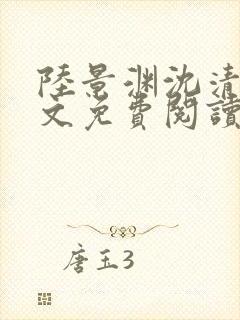 陸景渊沈清
文免費閱讀
唐玉3